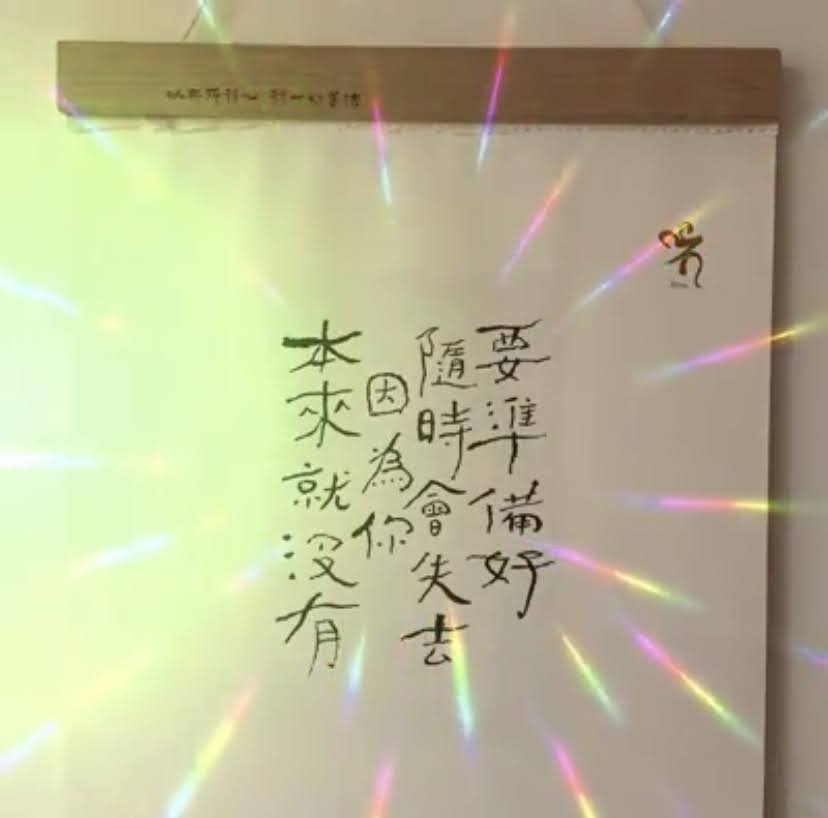 要準備好
隨時會失去
因為你
本來就沒有